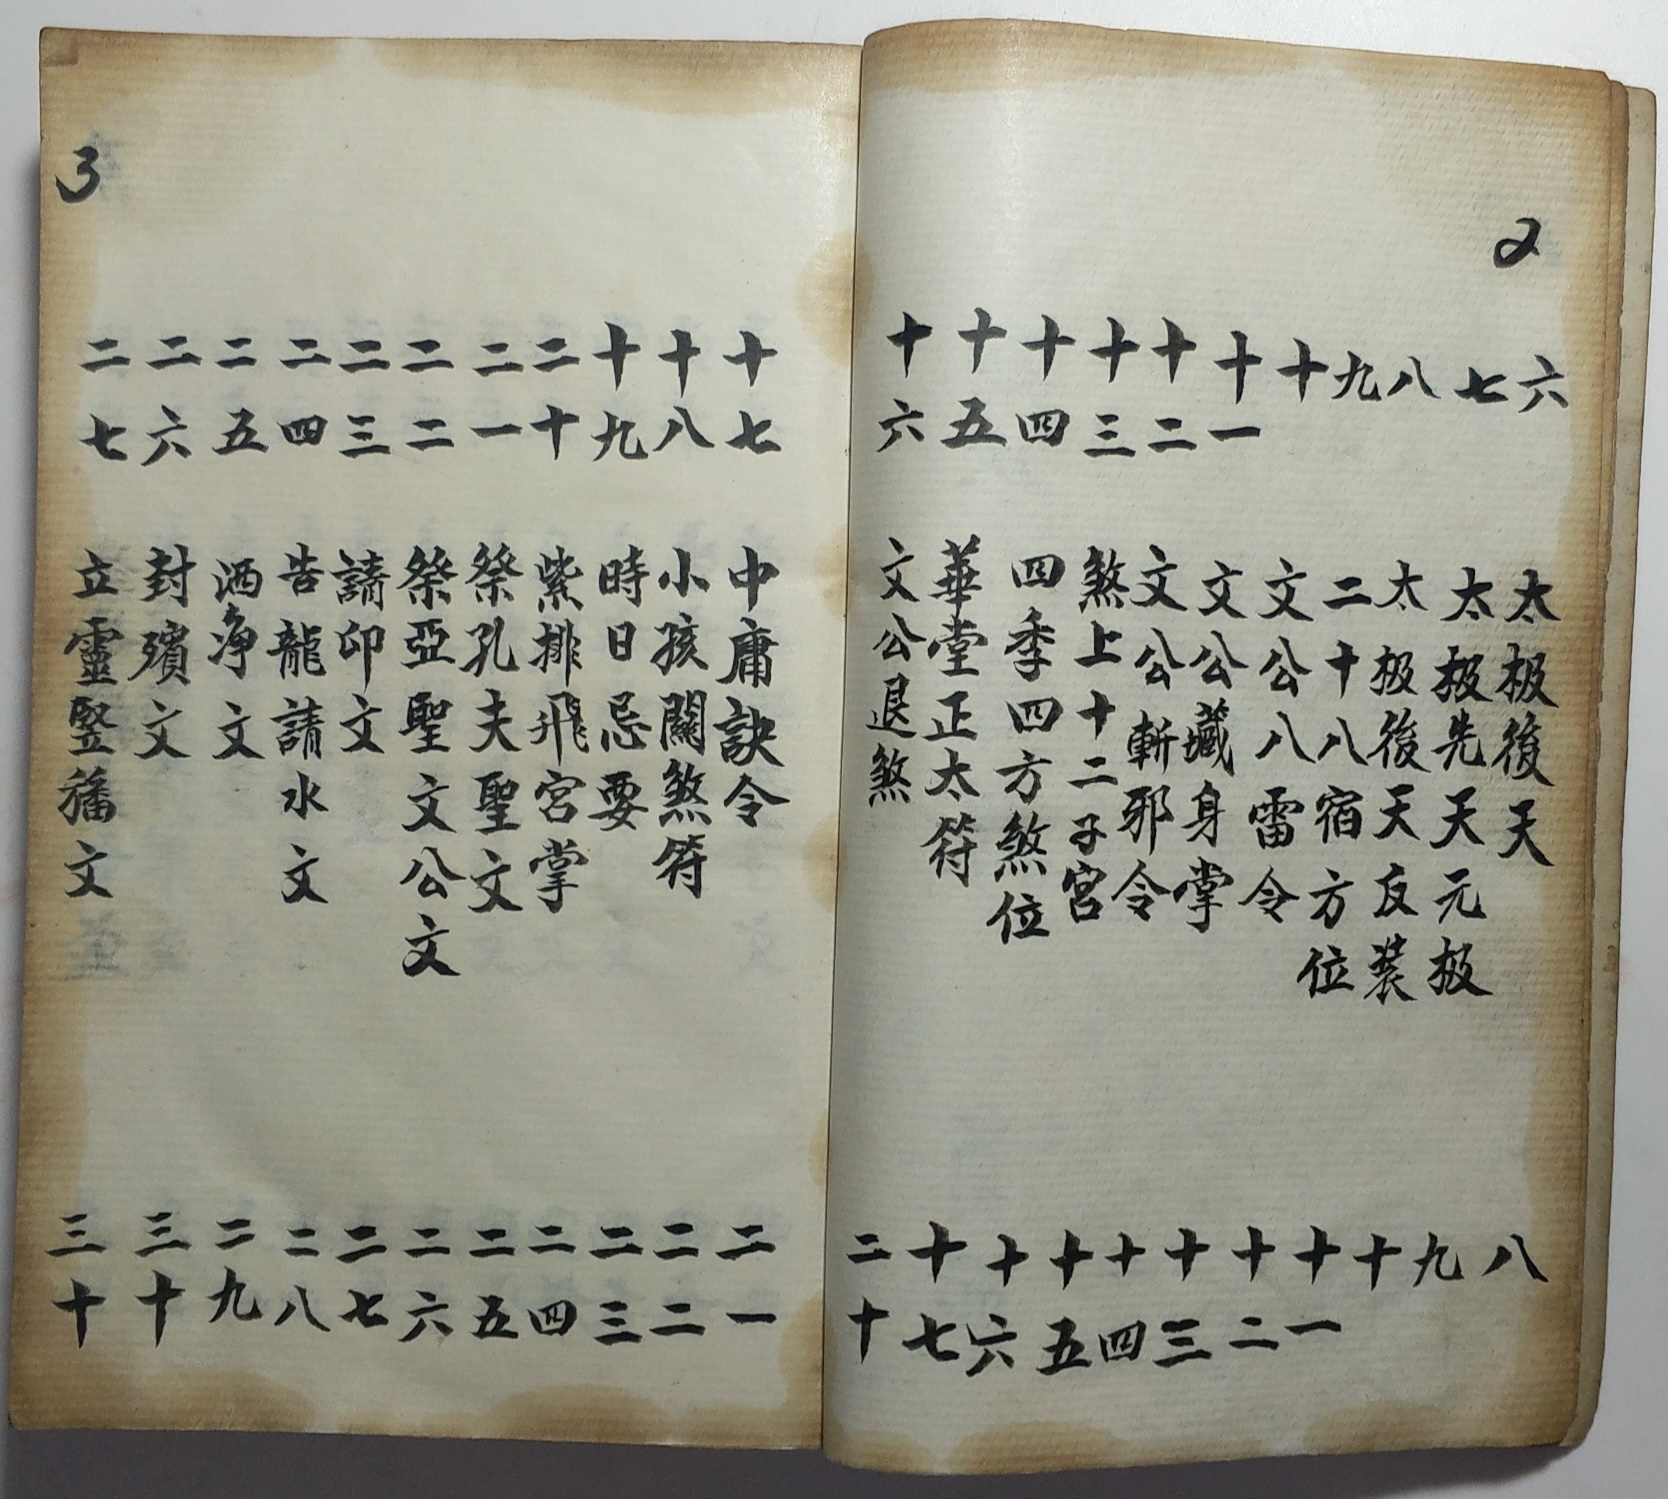 2
六 太极後天 八
七 太极先天元极 九
八 太极後天反装 十
九 二十八宿方位 十一
十 文公八雷令 十二
十一 文公藏身掌 十三
十二 文公斬邪令 十四
十三 煞上十二子宮 十五
十四 四季四方煞位 十六
十五 華堂正太符 十七
十六 文公退煞 二十
3
十七 中庸訣令 二一
十八 小孩關煞符 二二
十九 時日忌要 二三
二十 紫排飛宮掌 二四
二一 祭孔夫聖文 二五
二二 祭亞聖文公文 二六
二三 請卬文 二七
二四 告龍請水文 二八
二五 洒净文 二九
二六 封殯文 三十
二七 立靈竪旛文 三十